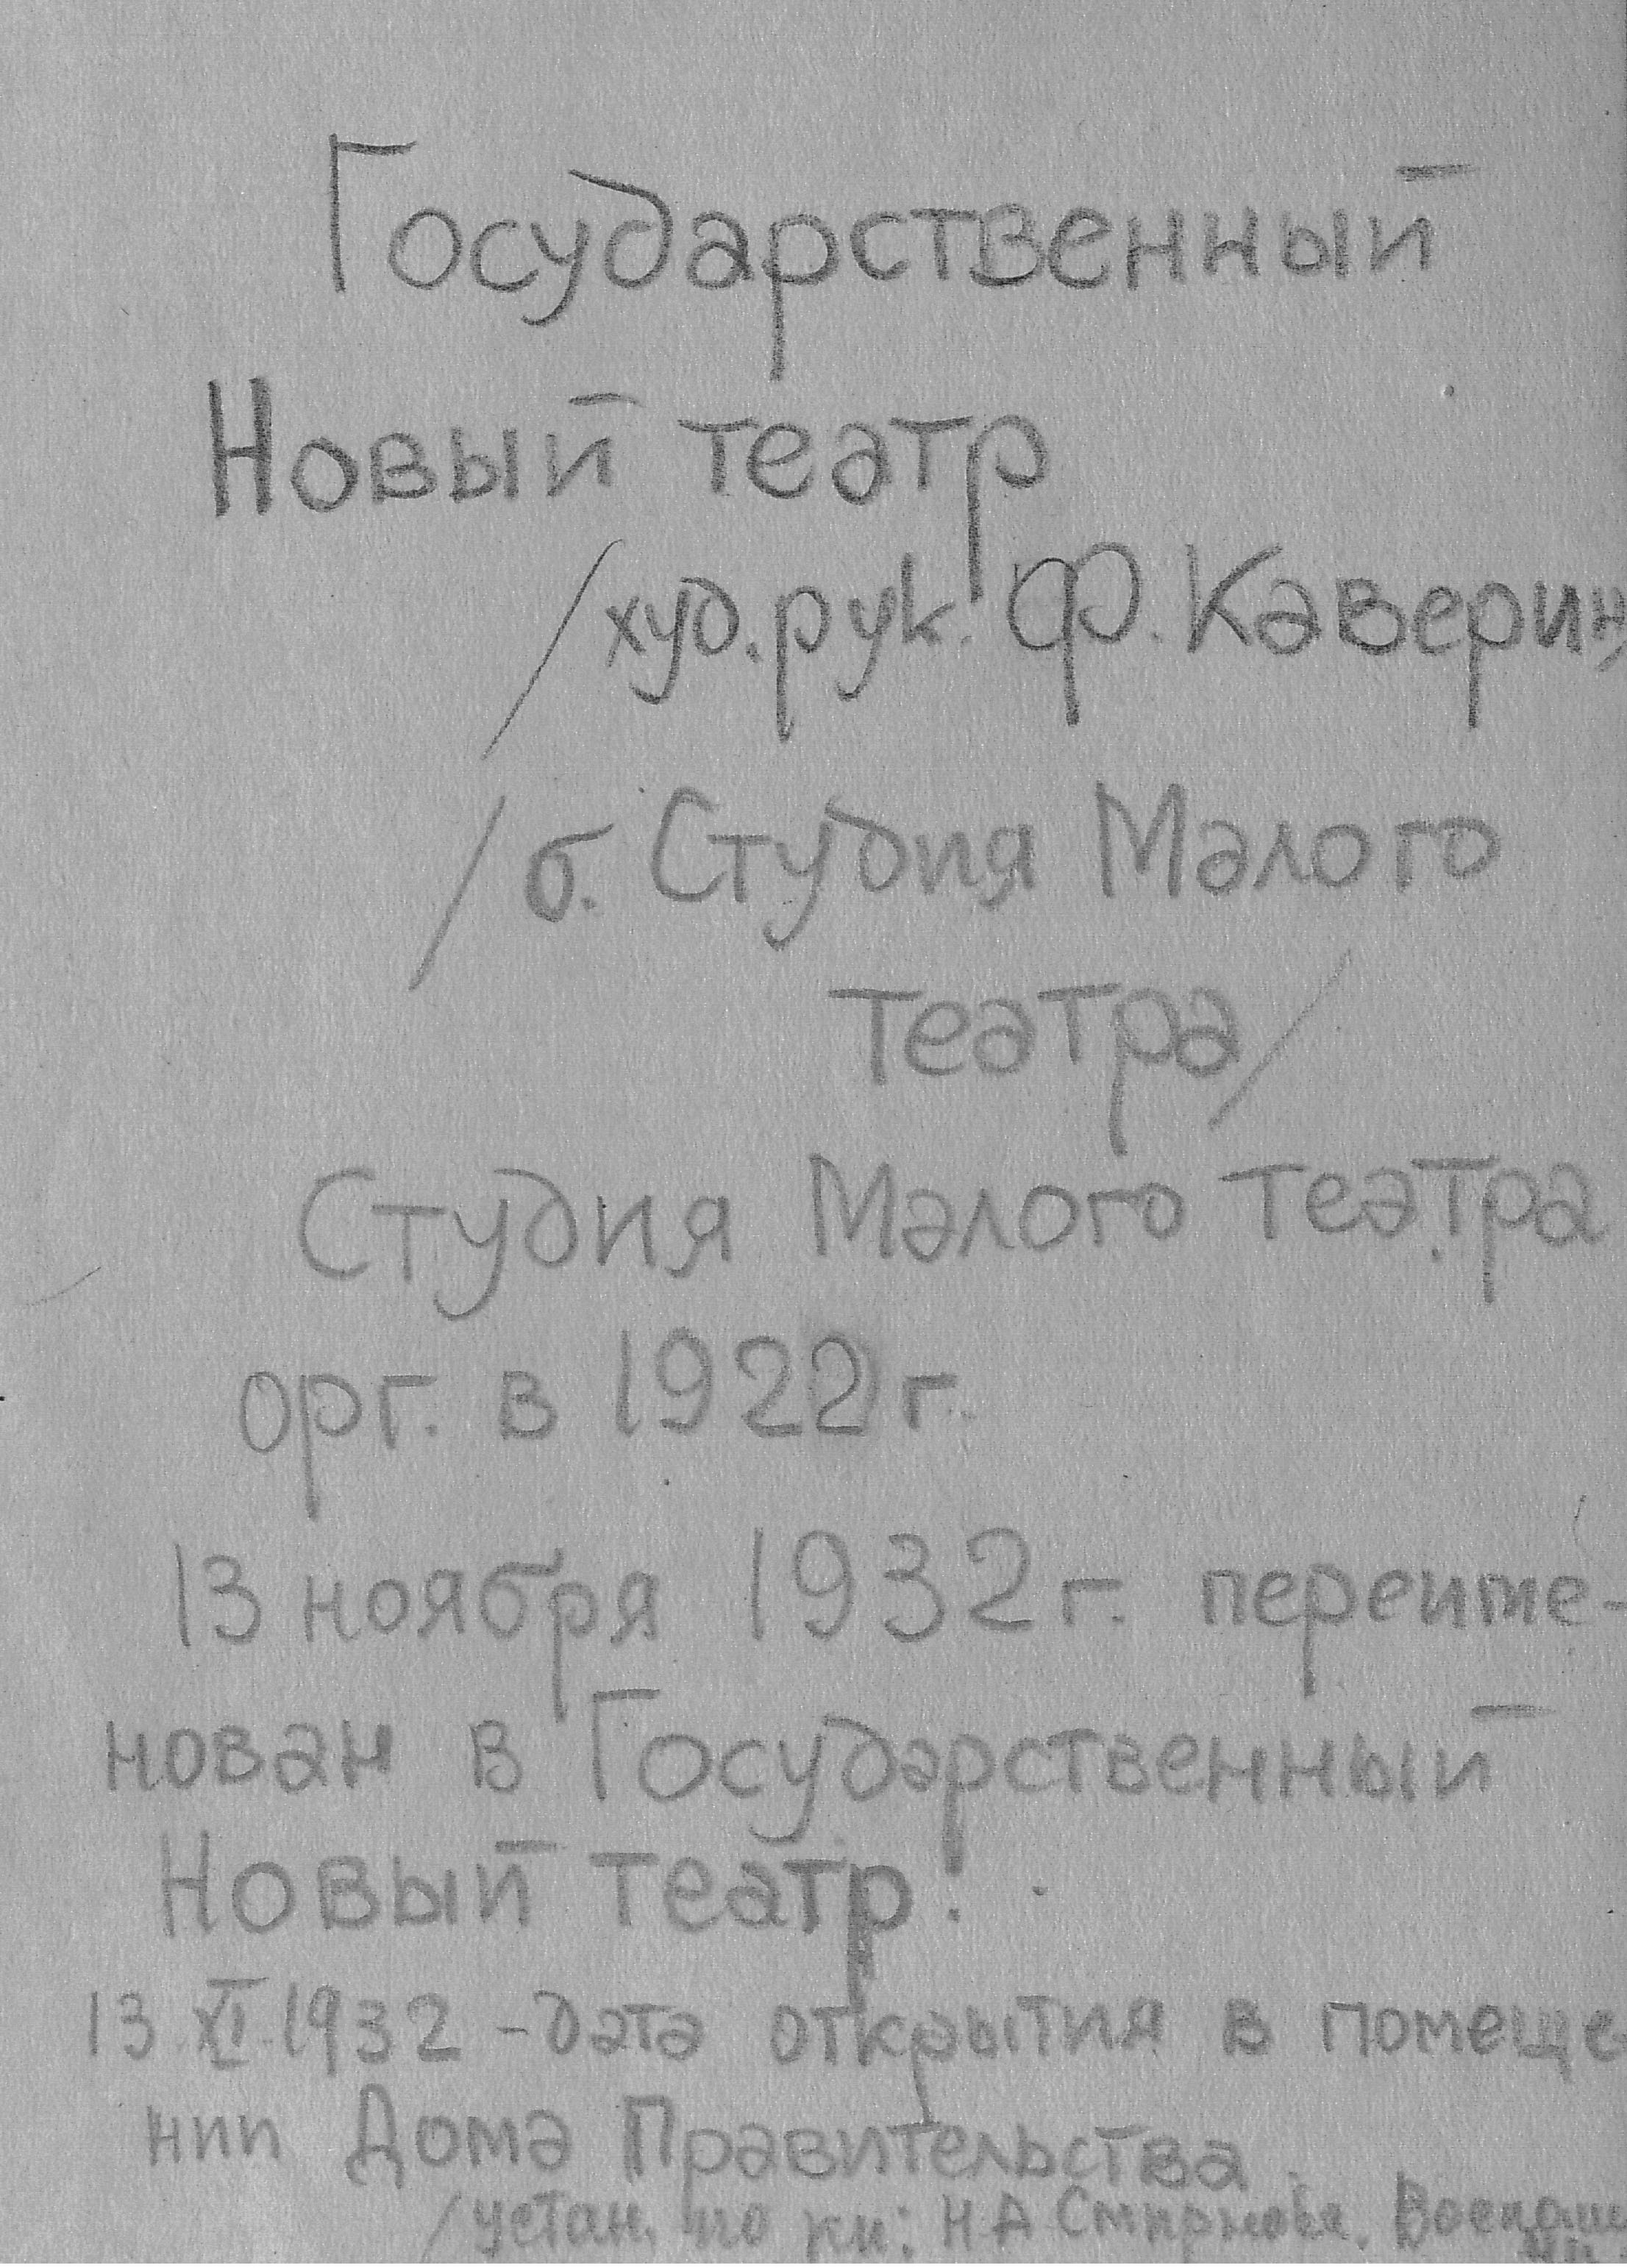 Государственный
Новый театр
/худ. рук. Ф. Каверин,
/б. Студия Малого
театра/
Студия Малого театра
орг. в 1922 г.
13 ноября 1932 г. переиме-
нован в Государственный
Новый театр.
13 XI 1932 - дата открытия в помеще
нии Дома Правительства.
/устан. по кн: Н А Смирнова.